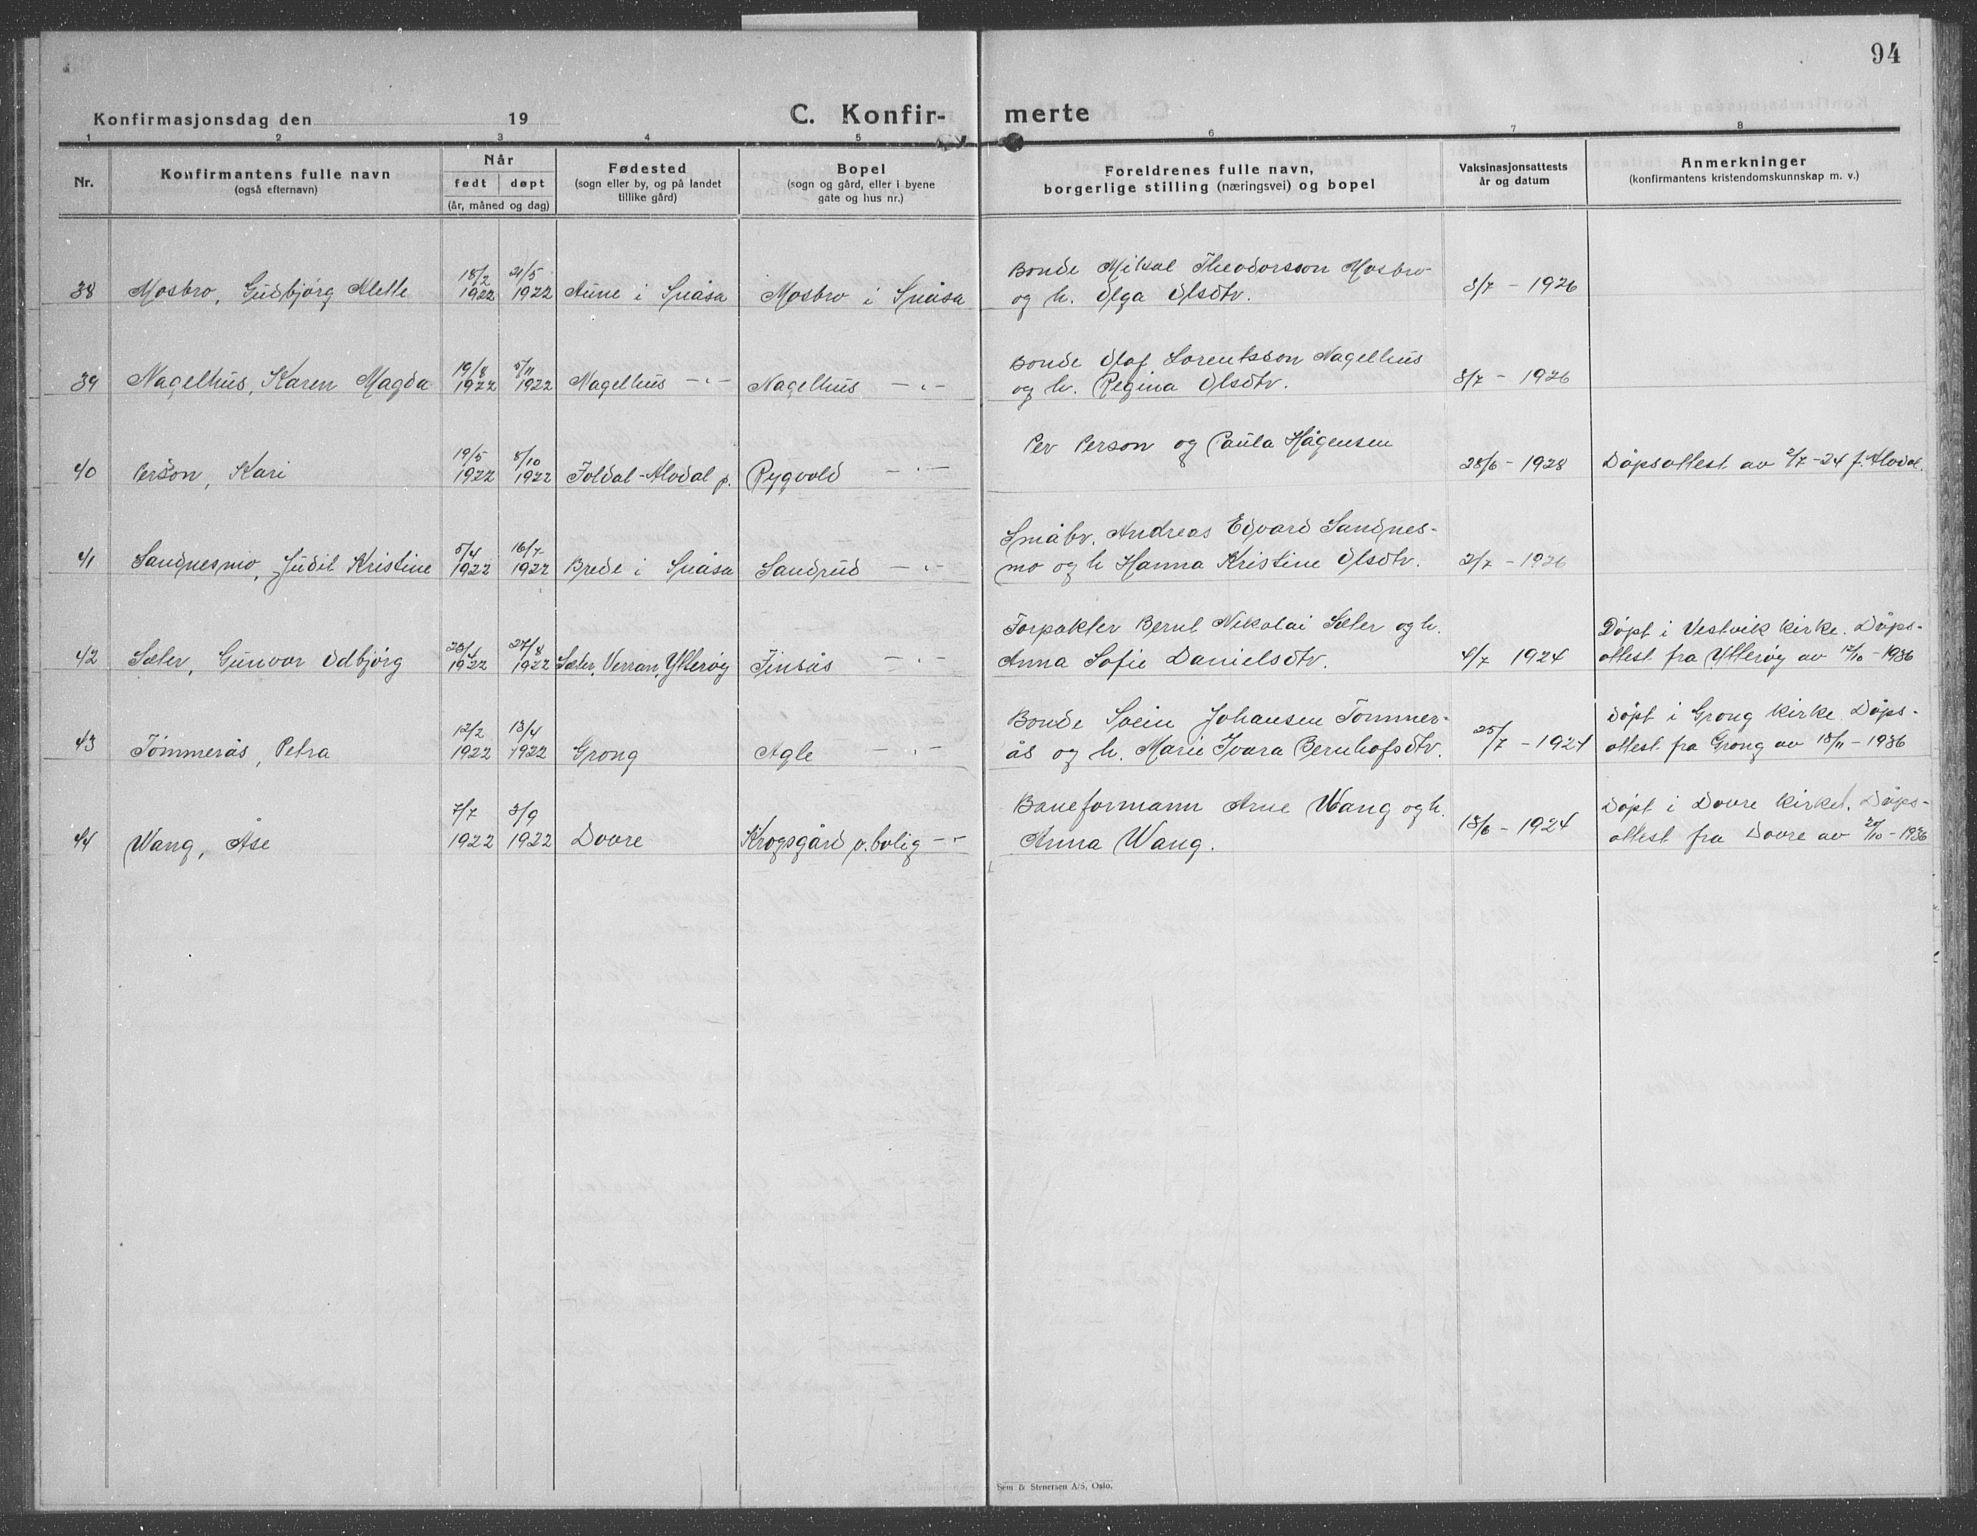 94
Konfirmasjonsdag den 19
C. Konfir- merte
1 2 3 4 5 6 7 8
Nr.
Konfirmantens fulle navn
(også efternavn)
Når
født døpt
(år, måned og dag)
Fødested
(sogn eller by, og på landet
tillike gård)
Bopel
(sogn og gård, eller i byene
gate og hus nr.)
Foreldrenes fulle navn,
borgerlige stilling (næringsvei) og bopel
Vaksinasjonsattests
år og datum
Anmerkninger
(konfirmantens kristendomskunnskap m. v.)
18/2 21/5 Bonde Mikal Theodorsson Mosbro
38 Mosbro, Gudbjørg Alette 1922 1922 Aune i Snåsa Mosbro i Snåsa og h. Olga Olsdtr. 3/7 - 1926
19/8 5/11 Bonde Olaf Lorentsson Nagelhus
39 Nagelhus, Karen Magda 1922 1922 Nagelhus -"- Nagelhus -"- og h. Regina Olsdtr. 3/7 - 1926
19/5 8/10 Per Person og Paula Hågensen
40 Person, Kari 1922 1922 Foldal-Alvdal p. Rygvold -"- 28/6 - 1928 Dåpsattest av 2/7-24 f. Alvdal.
5/4 16/7 Småbr. Andreas Edvard Sandnes-
41 Sandnesmo, Judit Kristine 1922 1922 Brede i Snåsa Sandrud -"- mo og h Hanna Kristine Olsdtr. 2/7 - 1926
27/8 Forpakter Bernt Nikolai Sæter og h. Døpt i Vestvik kirke. Dåps-
42 Sæter, Gunvor Odbjørg 1922 1922 Sæter, Verran, Ytterøy Finsås -"- Anna Sofie Danielsdtr. 4/7 1924 attest fra Ytterøy av 12/10 - 1936
12/2 13/4 Bonde Svein Johansen Tømmer- Døpt i Grong kirke. Dåps-
43 Tømmerås, Petra 1922 1922 Grong Agle -"- ås og h. Marie Ivara Bernhofsdtr. 25/7 - 1924 attest fra Grong av 18/11 - 1936
7/7 3/9 Baneformann Arne Wang og h. Døpt i Dovre kirke. Dåps-
44 Wang, Åse 1922 1922 Dovre Krogsgård v.bolig -"- Anna Wang. 18/6 - 1924 attest fra Dovre av 20/10 - 1936
Sem & Stenersen A/S, Oslo.